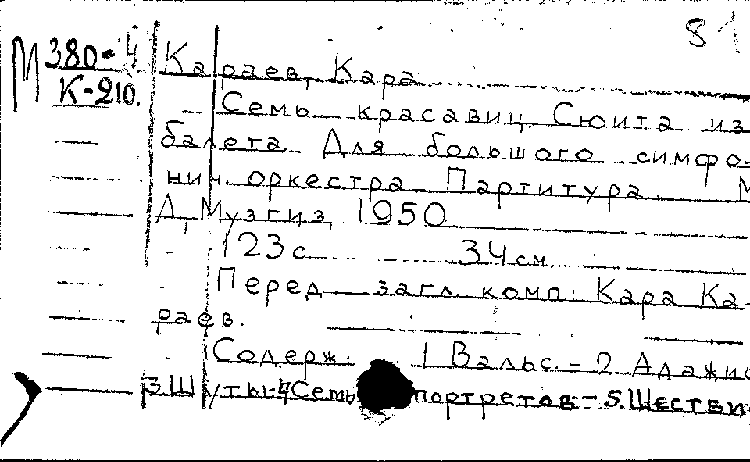 81
М 380-4
К-210.
Караев, Кара
Семь красавиц Сюита из
балета Для большого симфо-
нич. оркестра Партитура. М
Л, Музгиз, 1950
123с 34см
Перед загл. комп. Кара Ка-
раев.
Содерж. 1 Вальс.- 2. Адажио
3.Шуты-4Семь портретов-5.Шестви